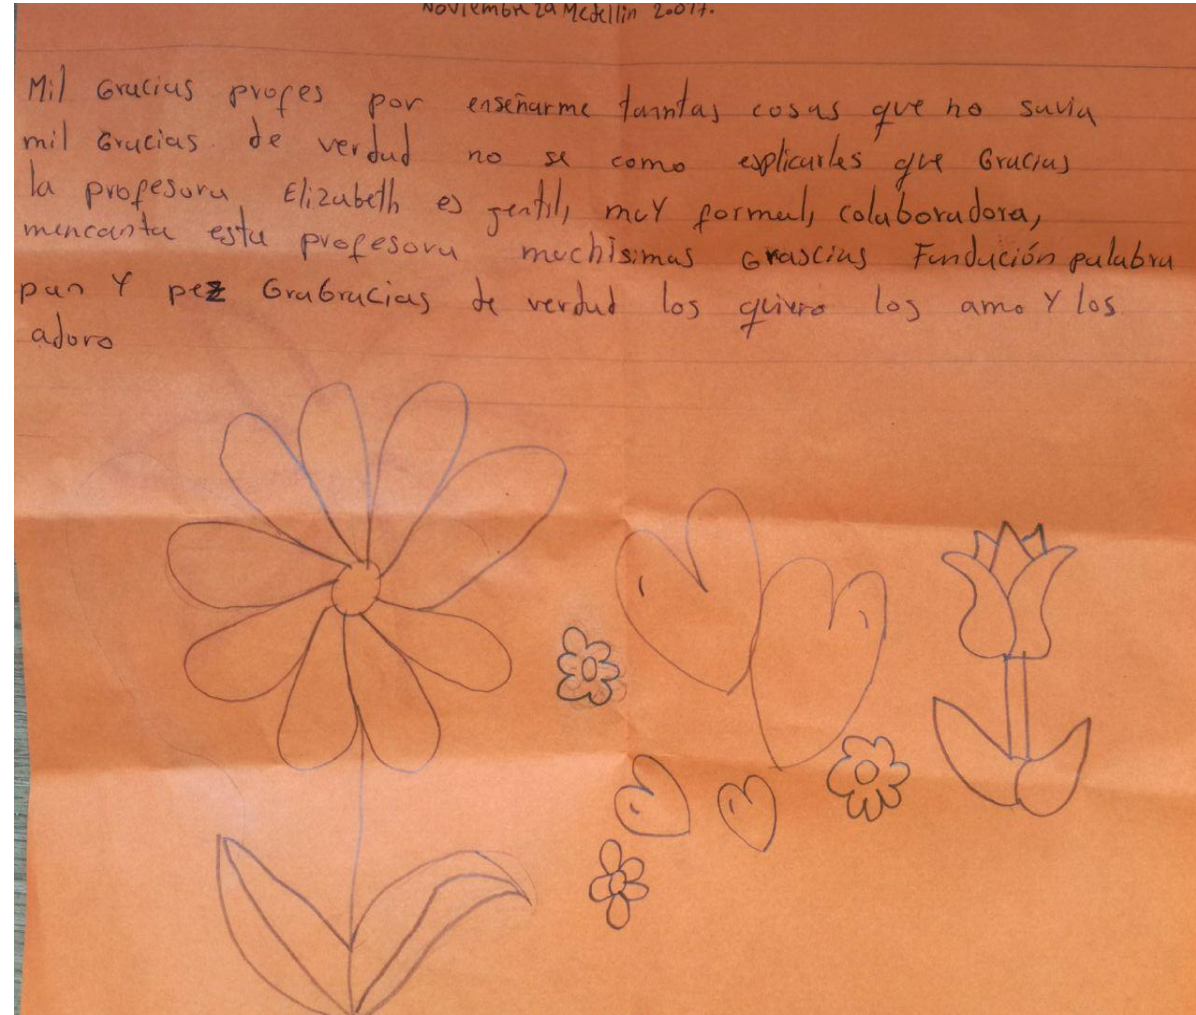 Noviembre 29 Medellin 20017.
Mil Gracias profes por enseñarme tanntas cosas que no savia
mil Gracias de verdad no se como esplicarles que Gracias
la profesora Elizabeth es gentil, muy formal, colaboradora,
mencanta esta profesora muchisimas Grascias Fundación palabra
pan Y pez GraGracias de verdad los quiero los amo Y los
adoro